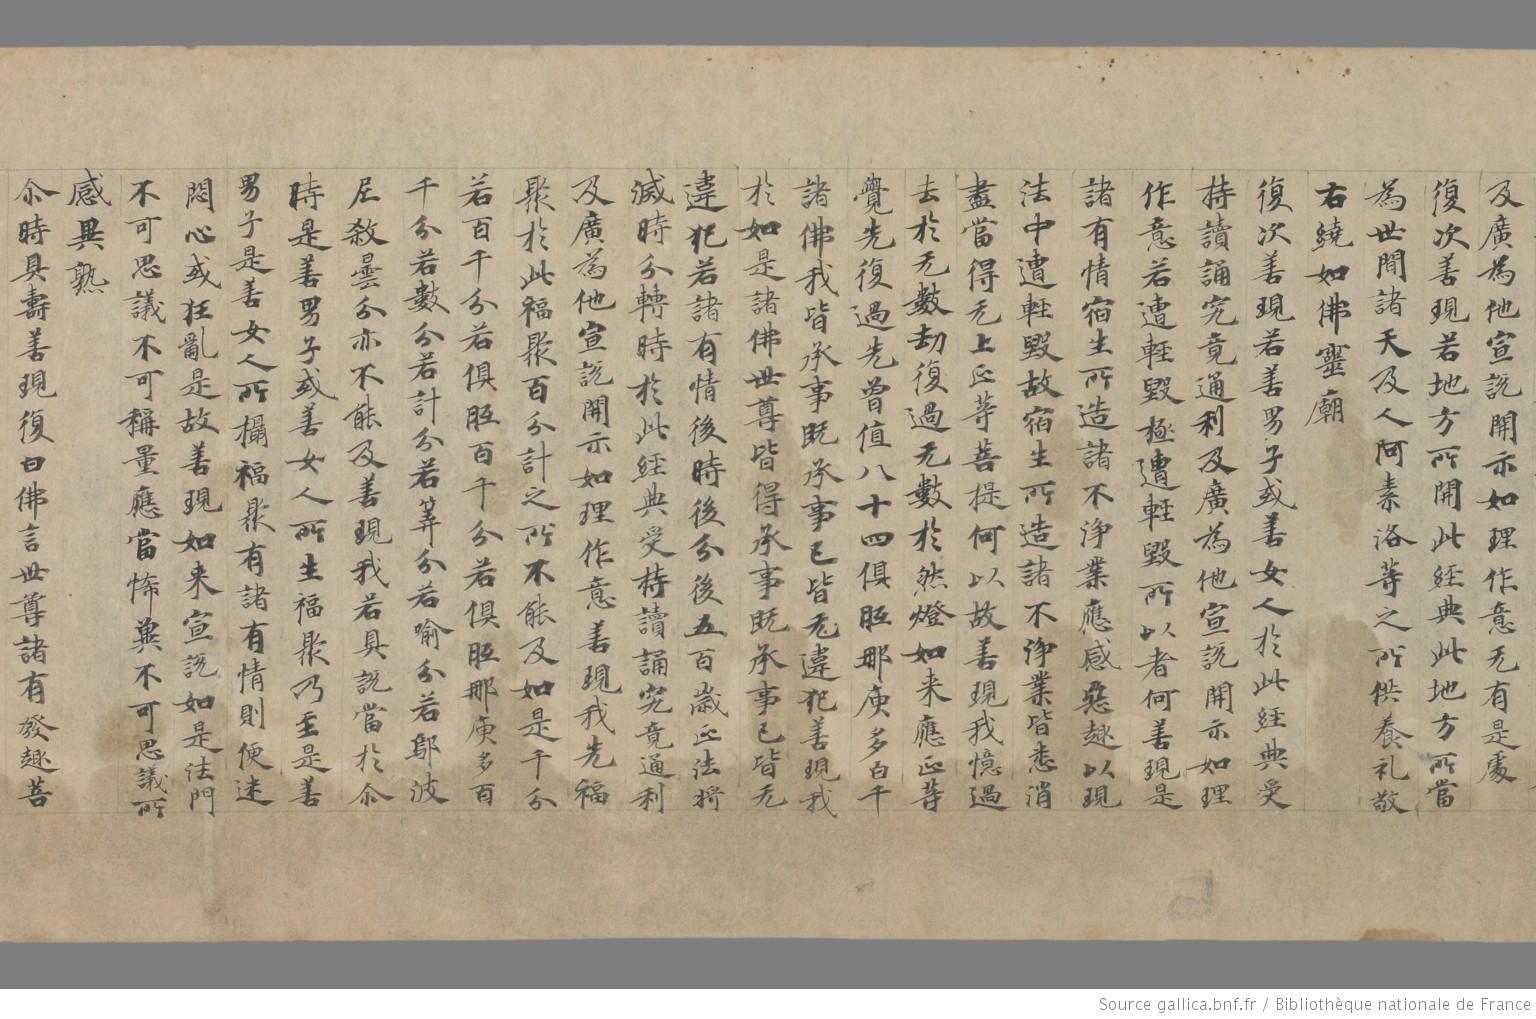 及廣為他宣說開示如理作意无有是處
復次善現若地方所開此經典此地方所當
為世間諸天及人阿素洛等之所供養礼敬
右繞如佛靈廟
復次善現若善男子或善女人於此經典受
持讀誦究竟通利及廣為他宣說開示如理
作意若遭輕毀極遭輕毀所以者何善現是
諸有情宿生所造諸不淨業應感惡趣以現
法中遭輕毀故宿生所造諸不淨業皆悉消
盡當得无上正等菩提何以故善現我憶過
去於无數劫復過无數於然燈如来應正等
覺先復過先曾值八十四俱胝那庾多百千
諸佛我皆承事既承事已皆无違犯善現我
於如是諸佛世尊皆得承事既承事已皆无
違犯若諸有情後時後分後五百歲正法將
滅時分轉時於此經典受持讀誦究竟通利
及廣為他宣說開示如理作意善現我先福
聚於此福聚百分計之所不能及如是千分
若百千分若俱胝百千分若俱胝那庾多百
千分若數分若計分若筭分若喻分若鄔波
尼殺曇分亦不能及善現我若具說當於尒
時是善男子或善女人所生福聚乃至是善
男子是善女人所攝福聚有諸有情則便迷
悶心或狂亂是故善現如来宣說如是法門
不可思議不可稱量應當悕兾不可思議所
感異熟
尒時具壽善現復白佛言世尊諸有發趣菩
Source gallica.bnf.fr / Bibliothèque nationale de France